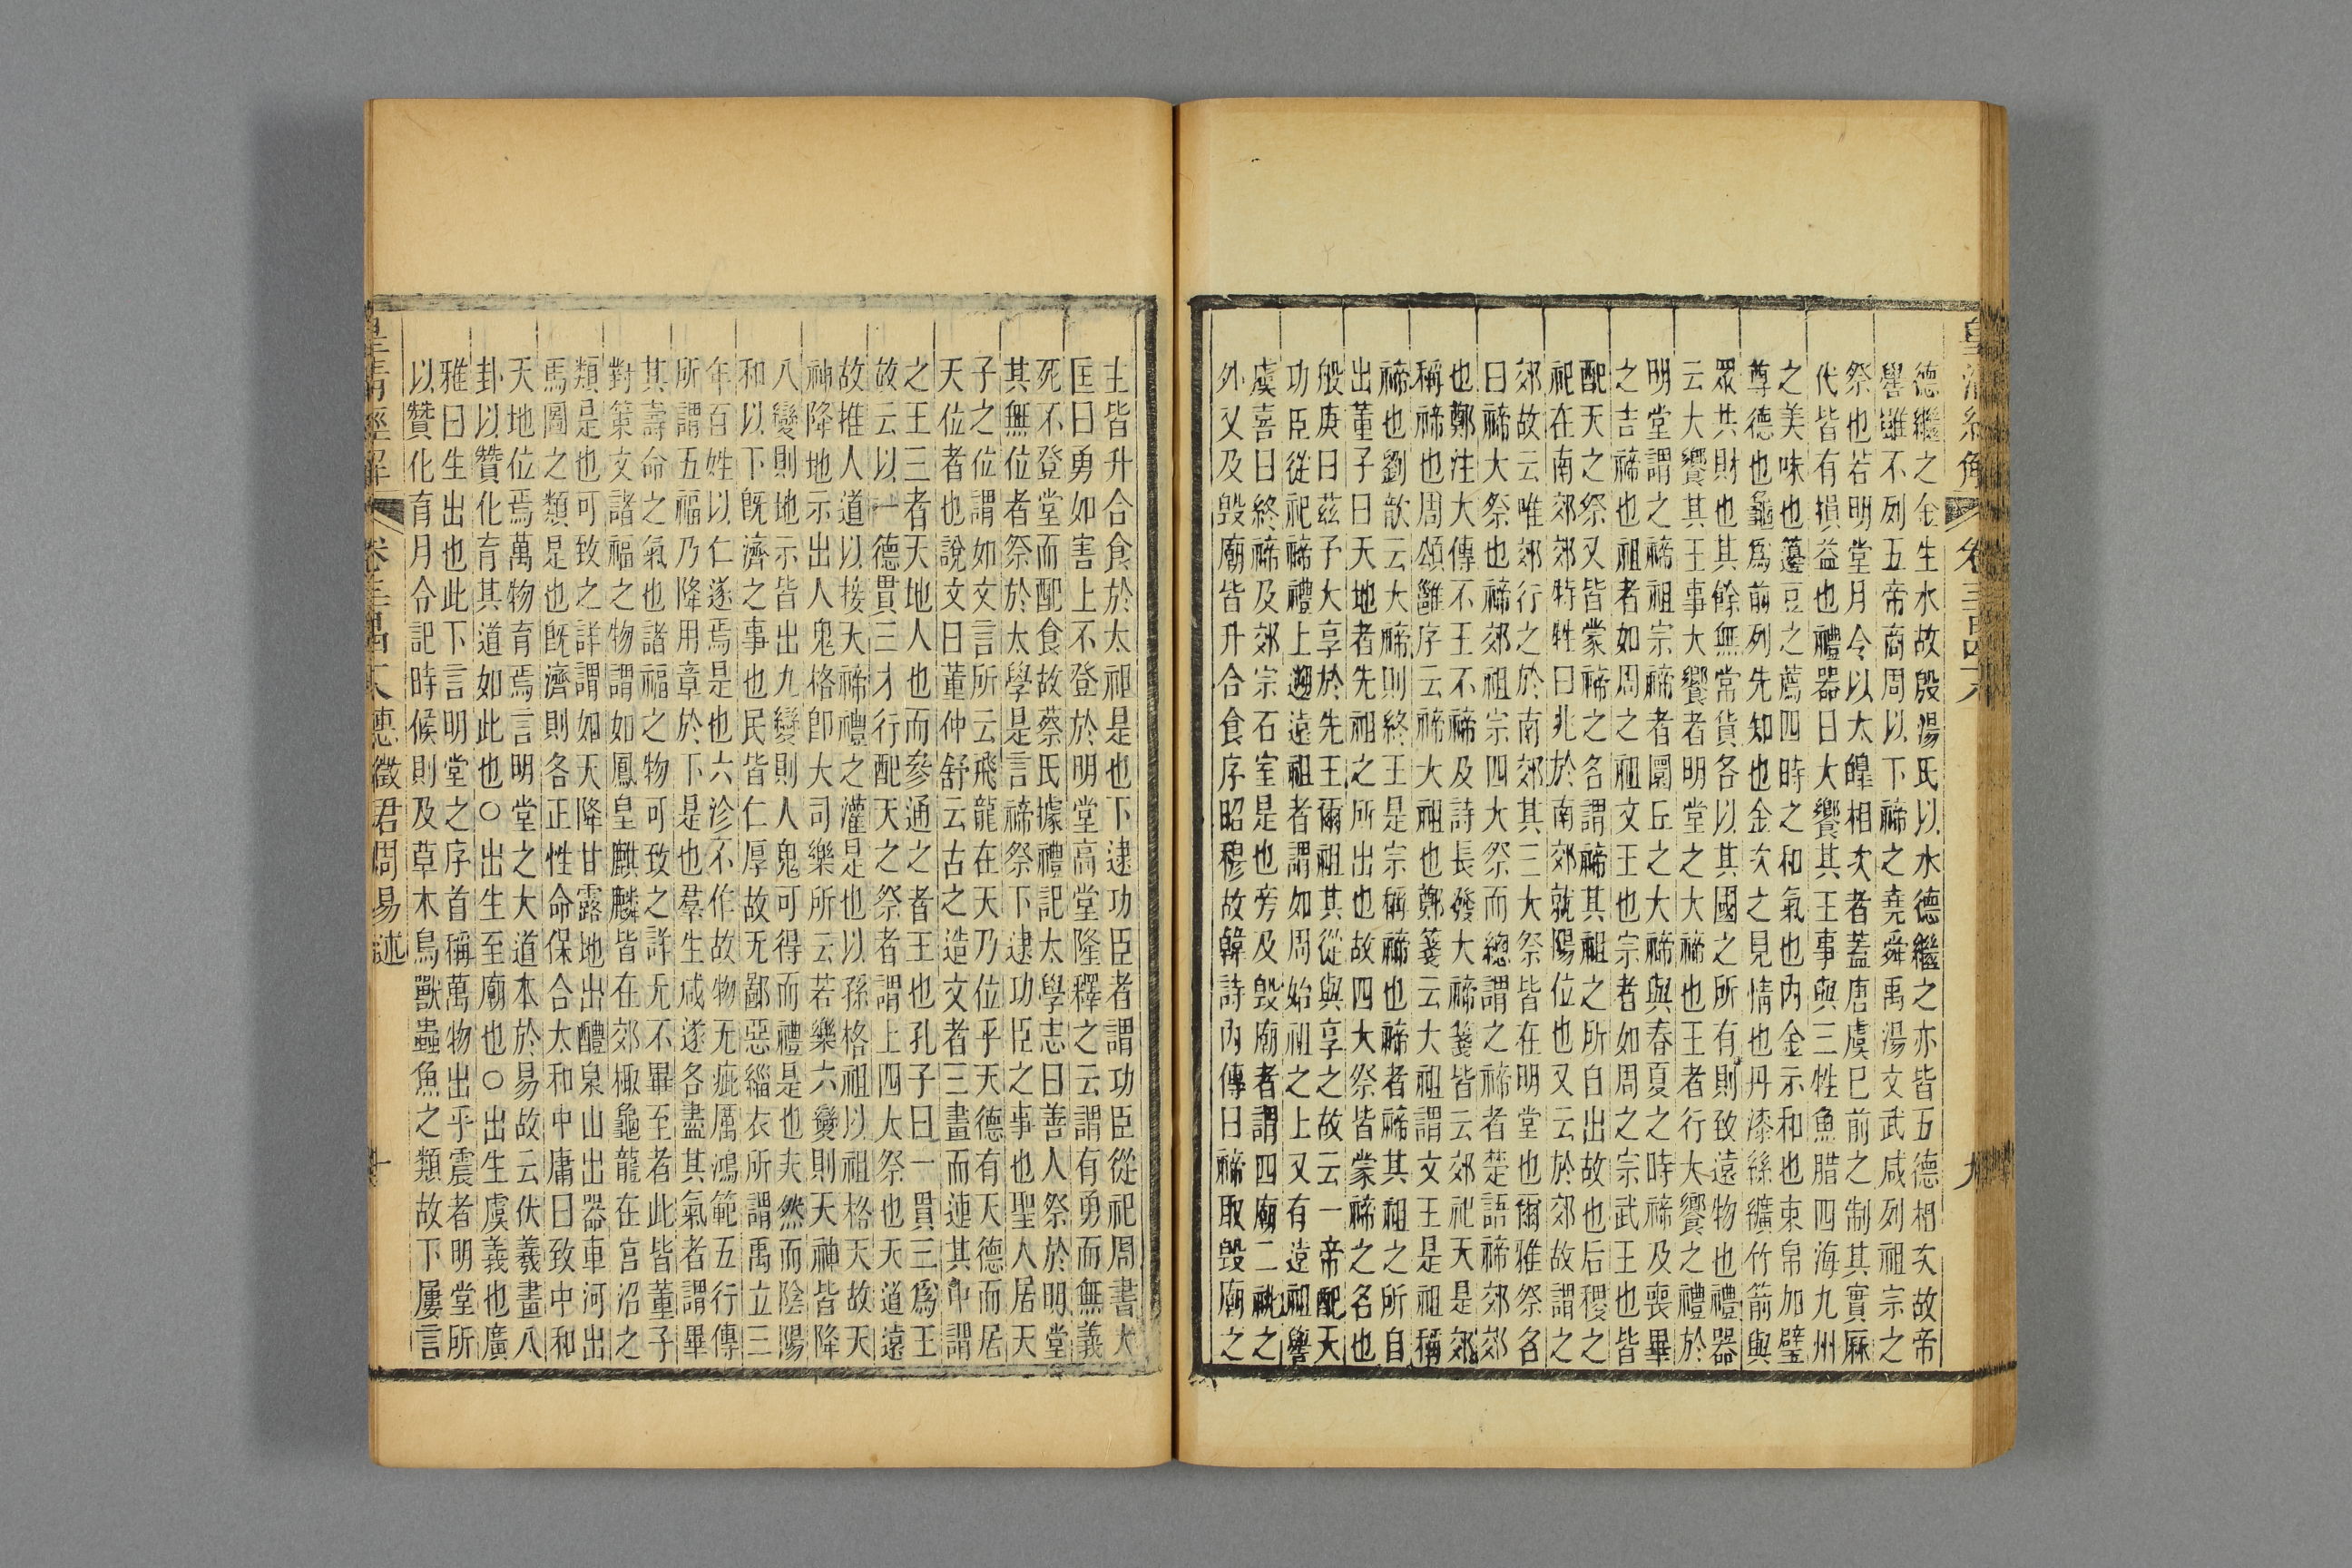 德繼之金生水故殷湯氏以水德繼之亦皆五德相次故帝
嚳雖不列五帝商周以下禘之堯舜禹湯文武咸列祖宗之
祭也若明堂月令以太皥相次者蓋唐虞巳前之制其實厤
代皆有損益也禮器曰大饗其王事與三牲魚腊四海九州
之美味也籩豆之薦四時之和氣也內金示和也束帛加璧
尊德也龜爲前列先知也金次之見情也丹漆絲纊竹箭與
眾共財也其餘無常貨各以其國之所有則致遠物也禮器
云大饗其王事大饗者明堂之大禘也王者行大饗之禮於
明堂謂之禘祖宗禘者圜丘之大禘與春夏之時禘及喪畢
之吉禘也祖者如周之祖文王也宗者如周之宗武王也皆
配天之祭又皆蒙禘之名謂禘其祖之所自出故也后稷之
祀在南郊郊特牲曰兆於南郊就陽位也又云於郊故謂之
郊故云唯郊行之於南郊其三大祭皆在明堂也爾雅祭名
曰禘大祭也禘郊祖宗四大祭而總謂之禘者楚語禘郊郊
也鄭注大傳不王不禘及詩長發大禘箋皆云郊祀天是郊
稱禘也周頌雝序云禘大祖也鄭箋云大祖謂文王是祖稱
禘也劉歆云大禘則終王是宗稱禘也禘者禘其祖之所自
出董子曰天地者先祖之所出也故四大祭皆蒙禘之名也
般庚曰茲予大享於先王爾祖其從與享之故云一帝配天
功臣從祀禘禮上遡遠祖者謂如周始祖之上又有遠祖嚳
虞喜曰終禘及郊宗石室是也旁及毁廟者謂四廟二祧之
外又及毁廟皆升合食序昭穆故韓詩內傳曰禘取毁廟之
皇清經解
卷三百四六
九
主皆升合食於太祖是也下逮功臣者謂功臣從祀周書大
匡曰勇如害上不登於明堂高堂隆釋之云謂有勇而無義
死不登堂而配食故蔡氏據禮記太學志曰善人祭於明堂
其無位者祭於太學是言禘祭下逮功臣之事也聖人居天
子之位謂如文言所云飛龍在天乃位乎天德有天德而居
天位者也說文曰董仲舒云古之造文者三畫而連其中謂
之王三者天地人也而參通之者王也孔子曰一貫三爲王
故云以一德貫三才行配天之祭者謂上四大祭也天道遠
故推人道以接天禘禮之灌是也以孫格祖以祖格天故天
神降地示出人鬼格卽大司樂所云若樂六變則天神皆降
八變則地示皆出九變則人鬼可得而禮是也夫然而陰陽
和以下旣濟之事也民皆仁厚故无鄙惡緇衣所謂禹立三
年百姓以仁遂焉是也六沴不作故物无疵厲鴻範五行傳
所謂五福乃降用章於下是也羣生咸遂各盡其氣者謂畢
其壽命之氣也諸福之物可致之詳无不畢至者此皆董子
對策文諸福之物謂如鳳皇麒麟皆在郊棷龜龍在宮沼之
類是也可致之詳謂如天降甘露地出醴泉山出器車河出
馬圖之類是也旣濟則各正性命保合太和中庸曰致中和
天地位焉萬物育焉言明堂之大道本於易故云伏羲畫八
卦以贊化育其道如此也○出生至廟也○出生虞義也廣
雅曰生出也此下言明堂之序首稱萬物出乎震者明堂所
以贊化育月令記時候則及草木鳥獸蟲魚之類故下屢言
皇清經解
卷三百四六惠徵君周易述
十